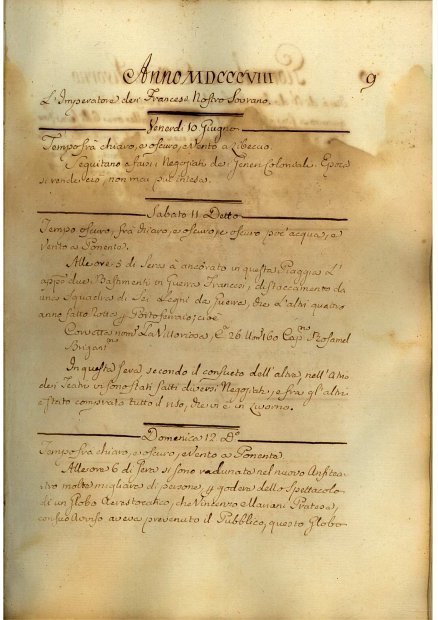 Anno MDCCCVIII 9
L'Imperatore dei Francesi Nostro Sovrano.
Venerdi 10 Giugno
Tempo frà chiaro, e oscuro, e Vento a Libeccio
Seguitano a farsi i Negoziati dei Generi Coloniali. Epoca
si vende
Sabato 11 Detto
Tempo oscuro, frà chiaro, e oscuro, e oscuro poc'acqua, e
Vento a Ponente.
Alle ore 5 di Sera à ancorato in questa Piaggia L'
due Bastimenti di Guerra Francesi, distaccamento da
una Squadra di Sei Legni da Guerra, che L'altri quattro
anno fatto Rotta Portoferraio, cioè
Corvetta La Vittoriosa, 26 160 Cap Rosamel
Brigan
In questa Sera secondo il consueto dell'altre, nell'Atrio
dei Teatri vi sono stati fatti diversi Negoziati, e frà gl'altri
è stato comprato tutto il riso, che vi è in Livorno.
Domenica 12 D.o
Tempo frà chiaro, e oscuro, e Vento a Ponente.
Alle ore 6 di Sera si sono radunate nel nuovo Anfitea-
tro molte migliara di persone, godere dello Spettacolo
di un Globo Aerostatico, che Vincenzo Mariani Pratese,
con suo Avviso aveva prevenuto il Pubblico, questo Globo